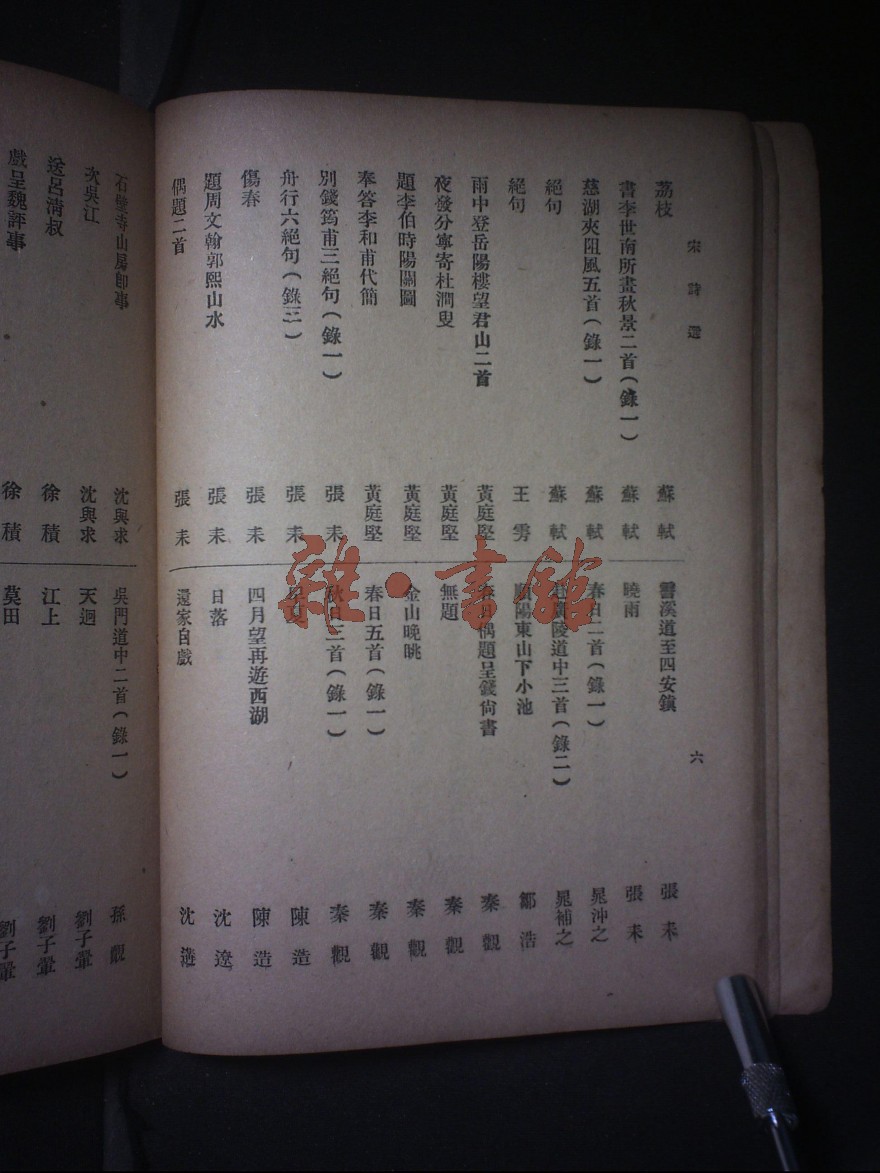 宋詩選
六
荔枝 蘇軾
書李世南所畫秋景二首(錄一) 蘇軾
慈湖夾阻風五首(錄一) 蘇軾
絕句 蘇軾
絕句 王雱
雨中登岳陽樓望君山二首 黃庭堅
夜發分寧寄杜澗叟 黃庭堅
題李伯時陽關圖 黃庭堅
奉答李和甫代簡 黃庭堅
別錢筠甫三絕句(錄一) 張耒
舟行六絕句(錄三) 張耒
傷春 張耒
題周文翰郭熙山水 張耒
偶題二首 張耒
霅溪道至四安鎮 張耒
曉雨 張耒
春日二首(錄一) 晁沖之
陵道中三首(錄二) 晁補之
陽東山下小池 鄒浩
偶題呈錢尙書 秦觀
無題 秦觀
金山晚眺 秦觀
春日五首(錄一) 秦觀
秋日三首(錄一) 秦觀
早夏 陳造
四月望再遊西湖 陳造
日落 沈遼
還家自戲 沈遘
石壁寺山房卽事 沈與求
次吳江 沈與求
送呂清叔 徐積
戲呈魏評事 徐積
吳門道中二首(錄一) 孫覿
天迴 劉子翬
江上 劉子翬
莫田 劉子翬
雜·書館